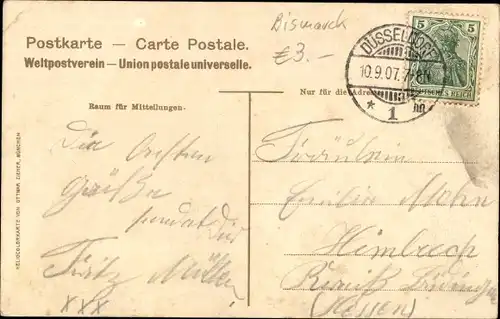 Bismarck
€3.-
Postkarte — Carte Postale.
Weltpostverein — Union postale universelle.
DÜSSELDORF
10.9.07. 7-8N
* 1
5 5
DEUTSCHES REICH
Raum für Mitteilungen.
Nur für die Adresse
HELIOCOLORKARTE VON OTTMAR ZIEHER, MÜNCHEN
Die besten
Grüße
sendet Dir
Fritz Müller
XXX
Fräulein
Emilie Mohn
Kreis Büdingen
(HESSEN)